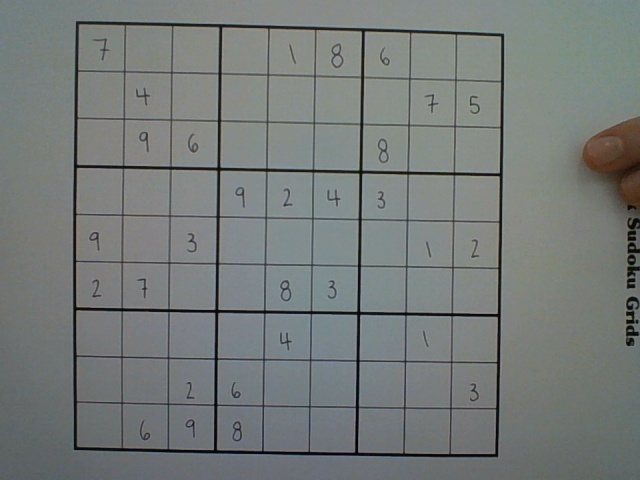 7 1 8 6
4 7 5
9 6 8
9 2 4 3
9 3 1 2
2 7 8 3
4 1
2 6 3
6 9 8
Sudoku Grids